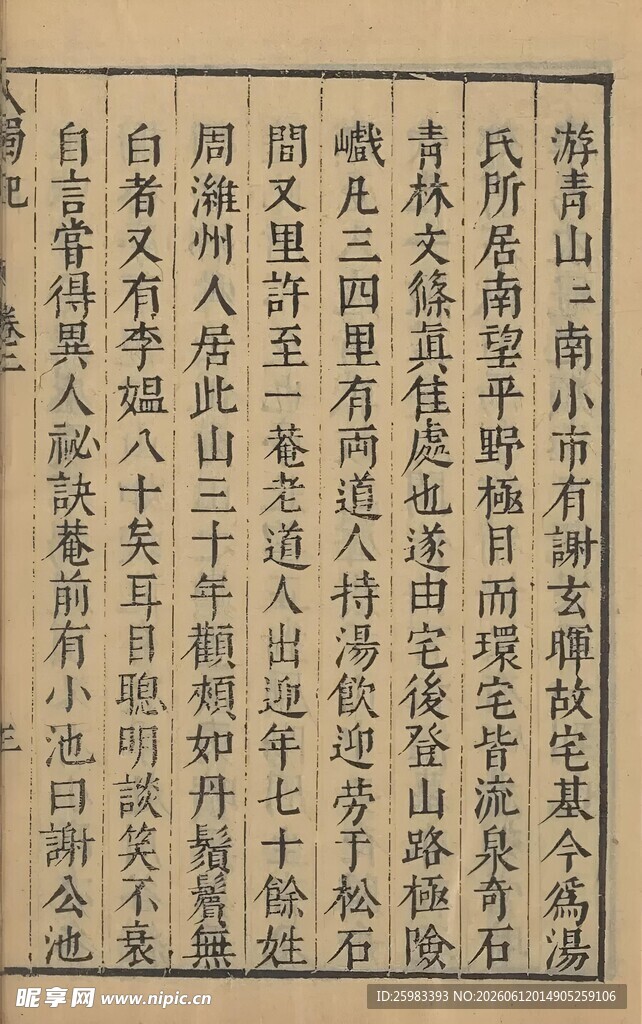 游青山〻南小市有謝玄暉故宅基今爲湯
氏所居南望平野極目而環宅皆流泉奇石
青林文篠眞佳處也遂由宅後登山路極險
巇凡三四里有両道人持湯飲迎劳于松石
間又里許至一菴老道人出迎年七十餘姓
周濰州人居此山三十年顴頰如丹鬚鬢無
白者又有李媪八十矣耳目聰明談笑不衰
自言嘗得異人祕訣菴前有小池曰謝公池
入蜀記 卷二 三
昵享网 www.nipic.cn
ID:25983393 NO:20260612014905259106